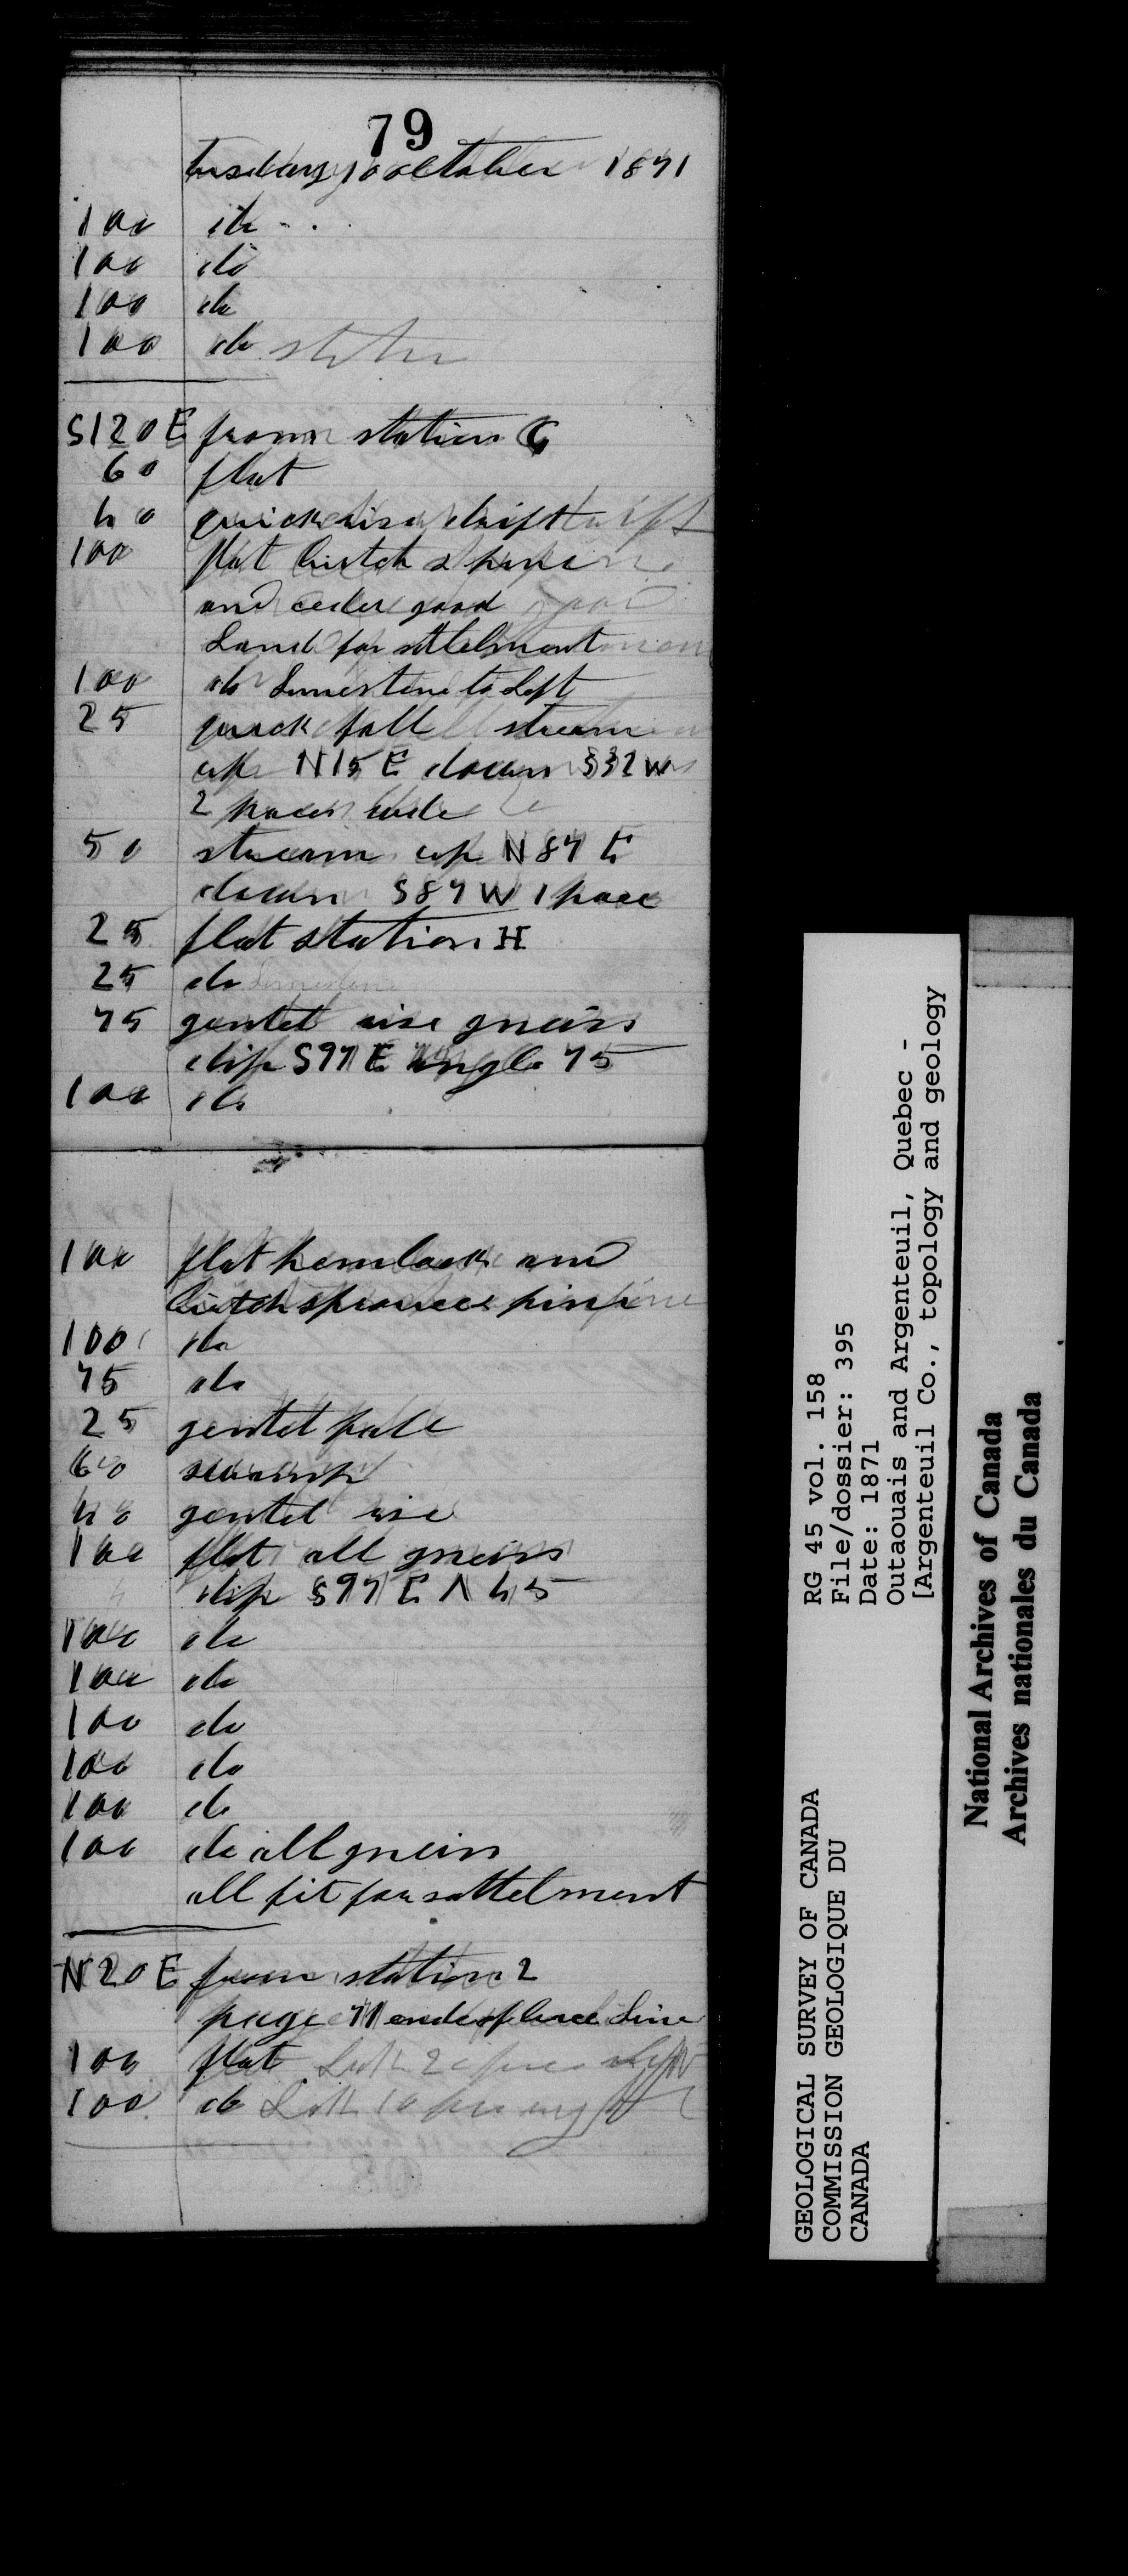 79
tusday 10 october 1871
100 do
100 do
100 do
100 do
S120E from station G
60 flat
40 quick rise drift
100 flat birtch & pine
and ceder good
Land for settelment
100 do Limestone to Left
25 quick fall stream
up N15E down S32W
2 paces wide
50 stream up N87E
down S87W 1 pace
25 flat station H
25 do Limestone
75 gentel rise gneiss
dip S97E angle 75
100 do
100 flat hemlock and
birtch sprouce pine
100 do
75 do
25 gentel fall
60 swamp
40 gentel rise
100 flat all gneiss
dip S97E Λ 45
100 do
100 do
100 do
100 do
100 do
100 do all gneiss
all fit for settelment
N20E from station 2
page 71 end of line
100 flat
100 do
RG 45 vol. 158
File/dossier: 395
Date: 1871
Outaouais and Argenteuil, Quebec -
[Argenteuil Co., topology and geology
GEOLOGICAL SURVEY OF CANADA
COMMISSION GEOLOGIQUE DU
CANADA
National Archives of Canada
Archives nationales du Canada